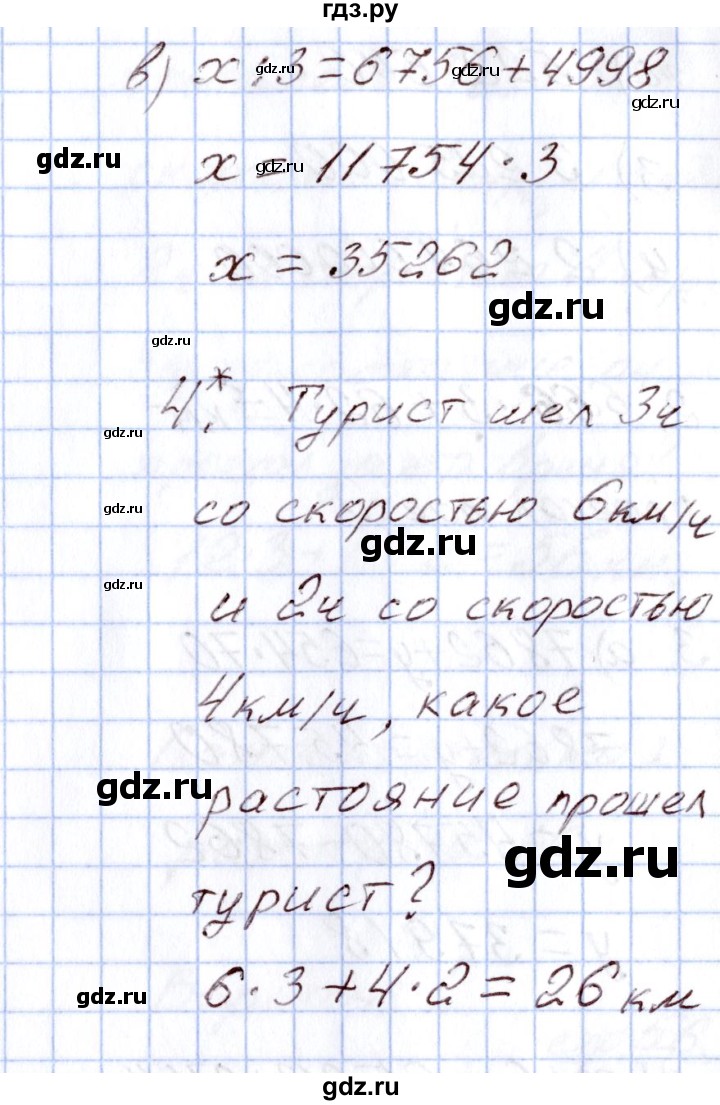 гдз.ру
в) x:3=6756+4998
gdz.ru
gdz.ru
gdz.ru
gdz.ru
x=11754·3
gdz.ru
x=35262
gdz.ru
gdz.ru
4*. Турист шел 3ч
gdz.ru
со скоростью 6км/ч
gdz.ru
gdz.ru
и 2ч со скоростью
gdz.ru
4км/ч, какое
gdz.ru
растояние прошел
gdz.ru
турист?
6·3+4·2=26км
gdz.ru
gdz.ru